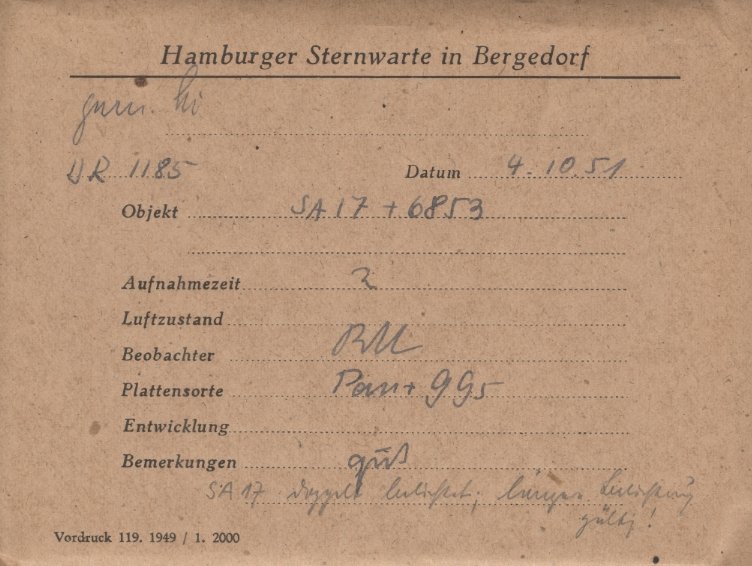 Hamburger Sternwarte in Bergedorf
DR 1185 Datum 4.10.51
Objekt SA 17 + 6853
Aufnahmezeit 2
Luftzustand
Beobachter
Plattensorte Pan + GG5
Entwicklung
Bemerkungen gut
SA 17 doppelt belichtet; längere Belichtung
gültig!
Vordruck 119. 1949 / 1. 2000